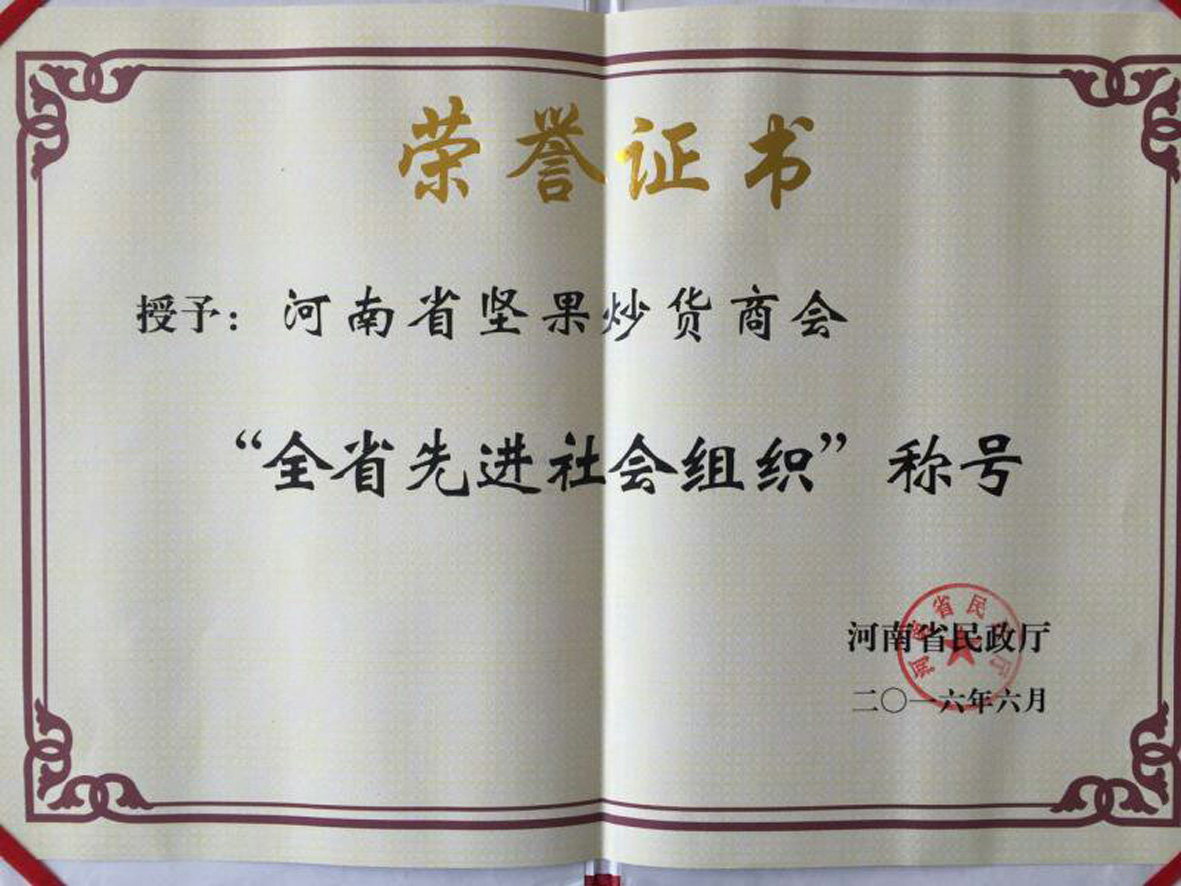 荣誉证书
授予：河南省坚果炒货商会
“全省先进社会组织”称号
河南省民政厅
二〇一六年六月